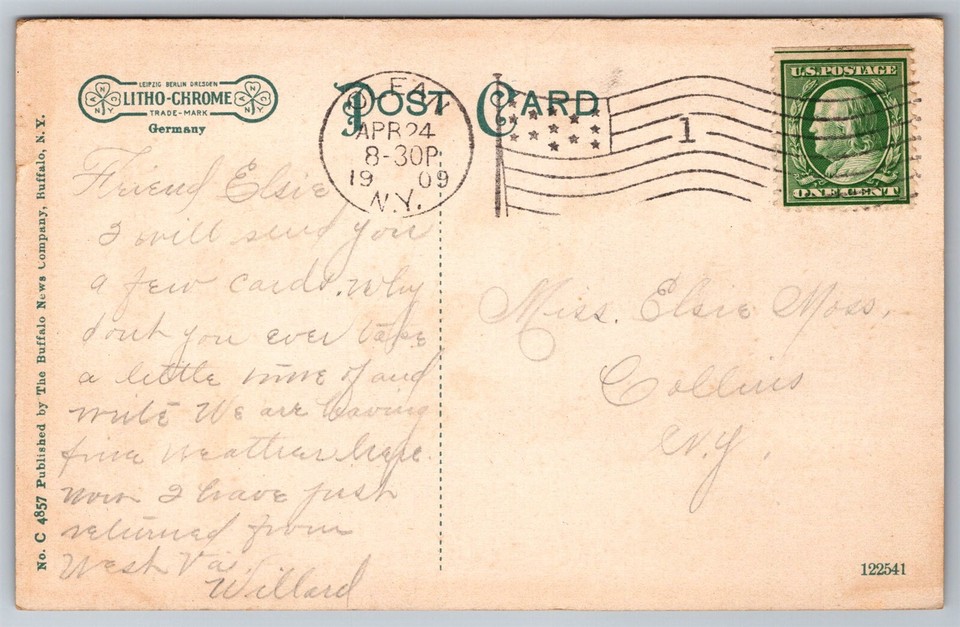 LEIPZIG BERLIN DRESDEN
LITHO-CHROME
TRADE-MARK
Germany
POST CARD
APR 24
8-30P
19 09
N.Y.
1
U.S. POSTAGE
ONE CENT
No. C 4857 Published by The Buffalo News Company, Buffalo, N. Y.
Friend Elsie
I will send you
a few cards. Why
dont you ever take
a little time of and
write We are having
fine weather here
now I have just
returned from
West Va.
Willard
Miss. Elsie Moss.
Collins
N.Y.
122541